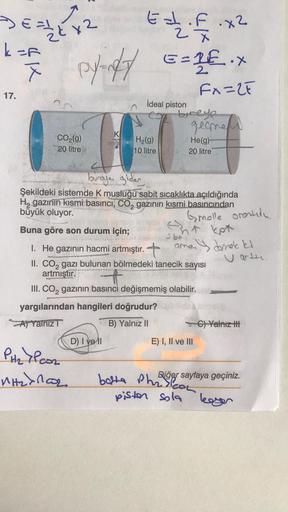 E = 1/2 k x2
E = 1/2 · F/x · x2
k = F/x
E = 1F/2 · x
Fx = 2E
17.
İdeal piston
CO₂(g)
20 litre
K
H₂(g)
10 litre
He(g)
20 litre
Şekildeki sistemde K musluğu sabit sıcaklıkta açıldığında
H₂ gazının kısmi basıncı, CO₂ gazının kısmi basıncından
büyük oluyor.
Buna göre son durum için;
I. He gazının hacmi artmıştır. +
II. CO₂ gazı bulunan bölmedeki tanecik sayısı
artmıştır. +
III. CO₂ gazının basıncı değişmemiş olabilir.
yargılarından hangileri doğrudur?
A) Yalnız I
B) Yalnız II
C) Yalnız III
D) I ve II
E) I, II ve III
Diğer sayfaya geçiniz.
PH2 > PCO2
nH2 > nCO2
piston sola